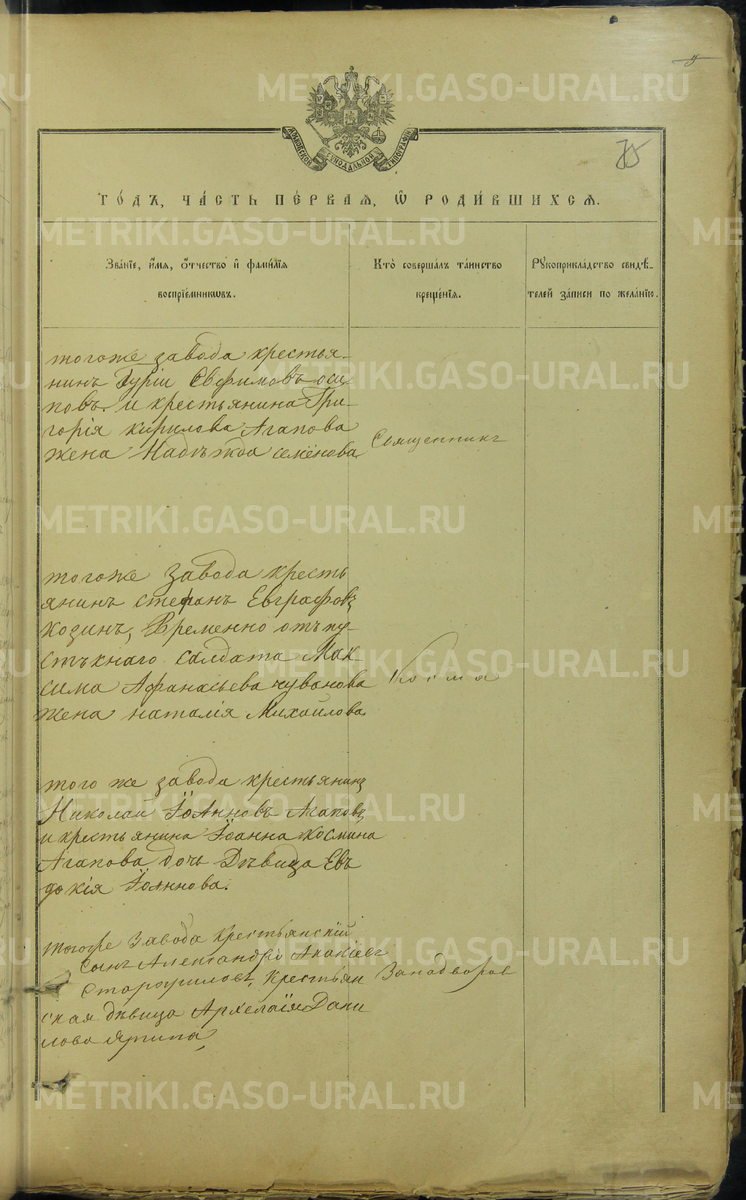 75
МОСКОВСКОЙ СУНОДАЛЬНОЙ ТИПОГРАФІИ
ГО́ДЪ, ЧА́СТЬ ПЕ́РВАЯ, Ѡ҆ РОДИ́ВШИХСЯ.
Зва́ніе, и҆́мя, ѻ҆́тчество и҆ фами́лїя
воспріе́мникωвъ.
Кто̀ соверша́лъ та́инство
креще́нїѧ.
Рꙋкоприкла́дство свидѣ́-
телей за́писи по жела́нїю.
тогоже завода крестья-
нинъ Гурій Евфимовъ оси
повъ. и крестьянина Гри-
горія кирилова Агапова
жена Надѣжда семёнова
Священникъ
тогоже завода кресть
янинъ стефанъ Евграфовъ
козинъ, Временно отъпу-
стъкнаго салдата Мак-
сима Афанасьева чуванова
жена наталія Михайлова
Косма
того же завода крестьянинъ
Николай Іоанновъ Агаповъ
и крестьянина Іоанна космина
Агапова дочь Дѣвица Евъ
докія Іоаннова.
тогоже завода крестьянскій
сынъ Александръ Акакіевъ
крестьян
Западворовъ
ская дѣвица Архелаія Дани
лова
METRIKI.GASO-URAL.RU